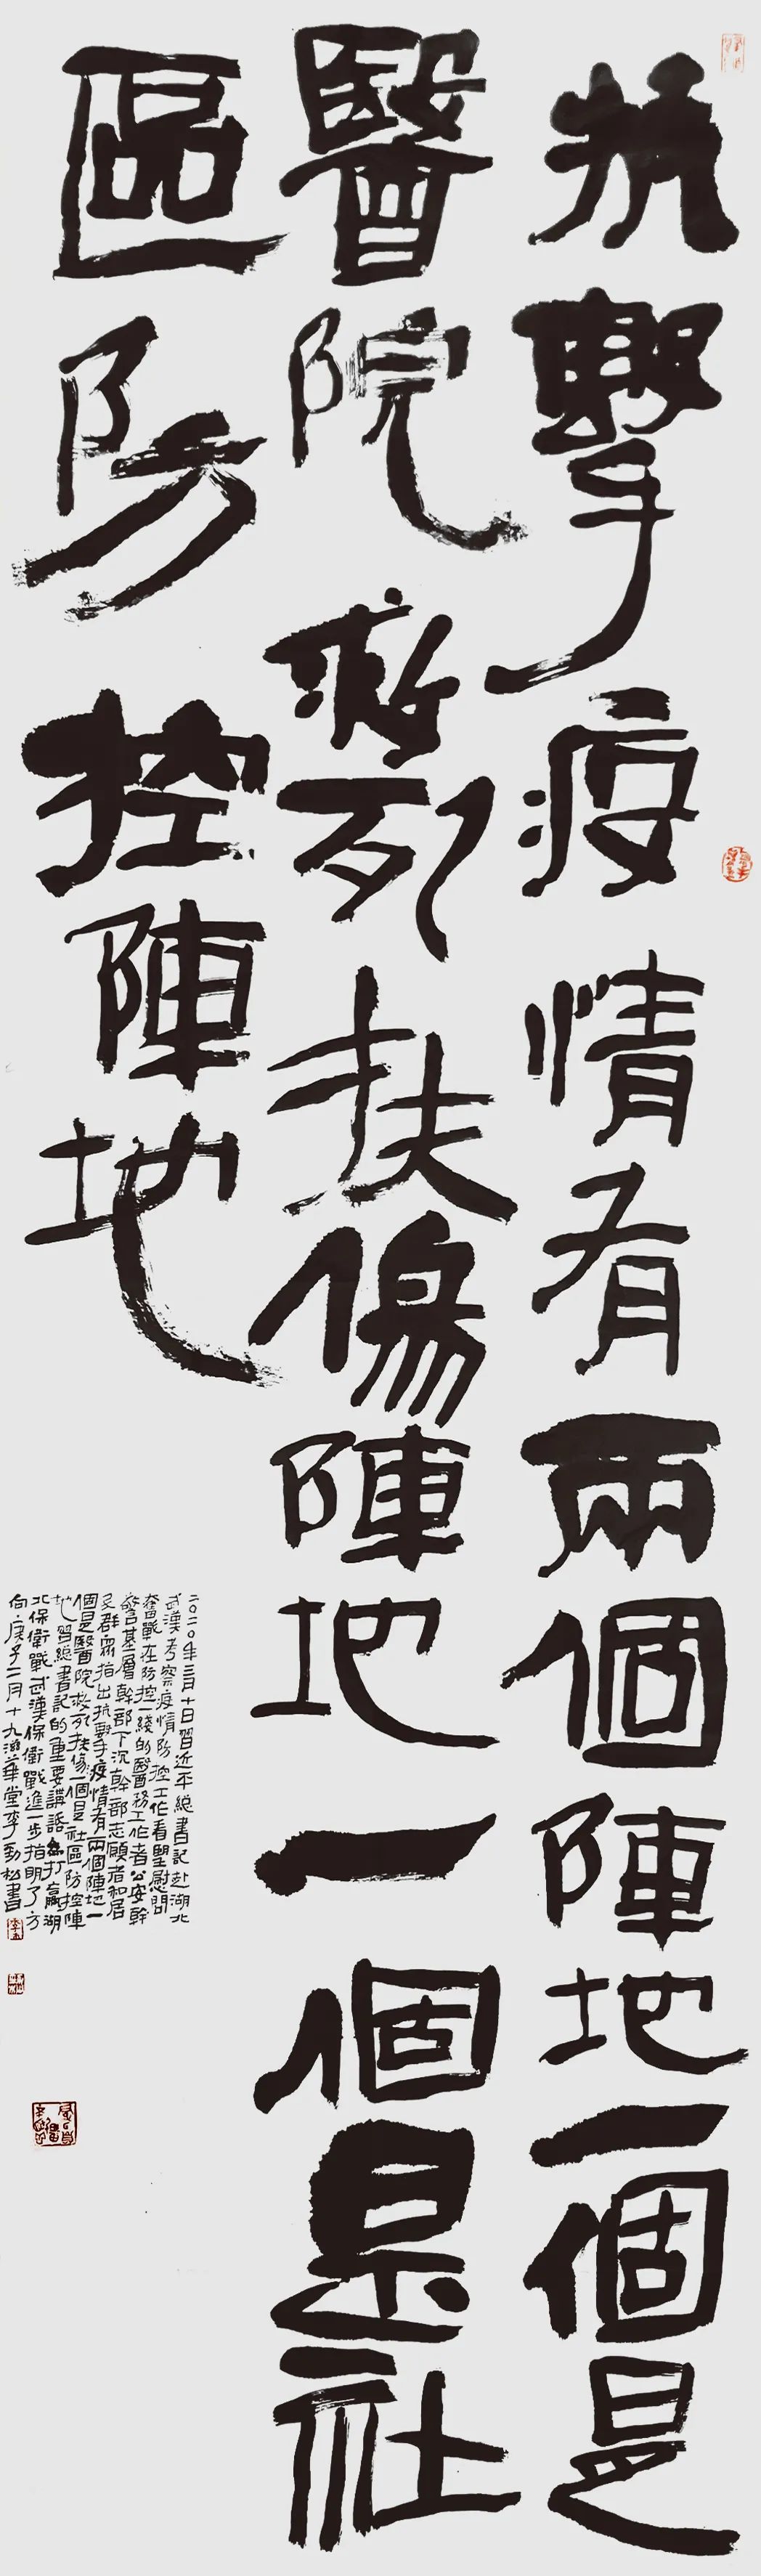 抗擊疫情有兩個陣地一個是
醫院救死扶傷陣地一個是社
區防控陣地
二〇二〇年三月十日習近平總書記赴湖北
武漢考察疫情防控工作看望慰問
奮戰在防控一綫的醫務工作者公安幹
警基層幹部下沉幹部志願者和居
民群衆指出抗擊疫情有兩個陣地一
個是醫院救死扶傷一個是社區防控陣
地習總書記的重要講話為打贏湖
北保衛戰武漢保衛戰進一步指明了方
向庚子二月十九滋華堂李勁松書